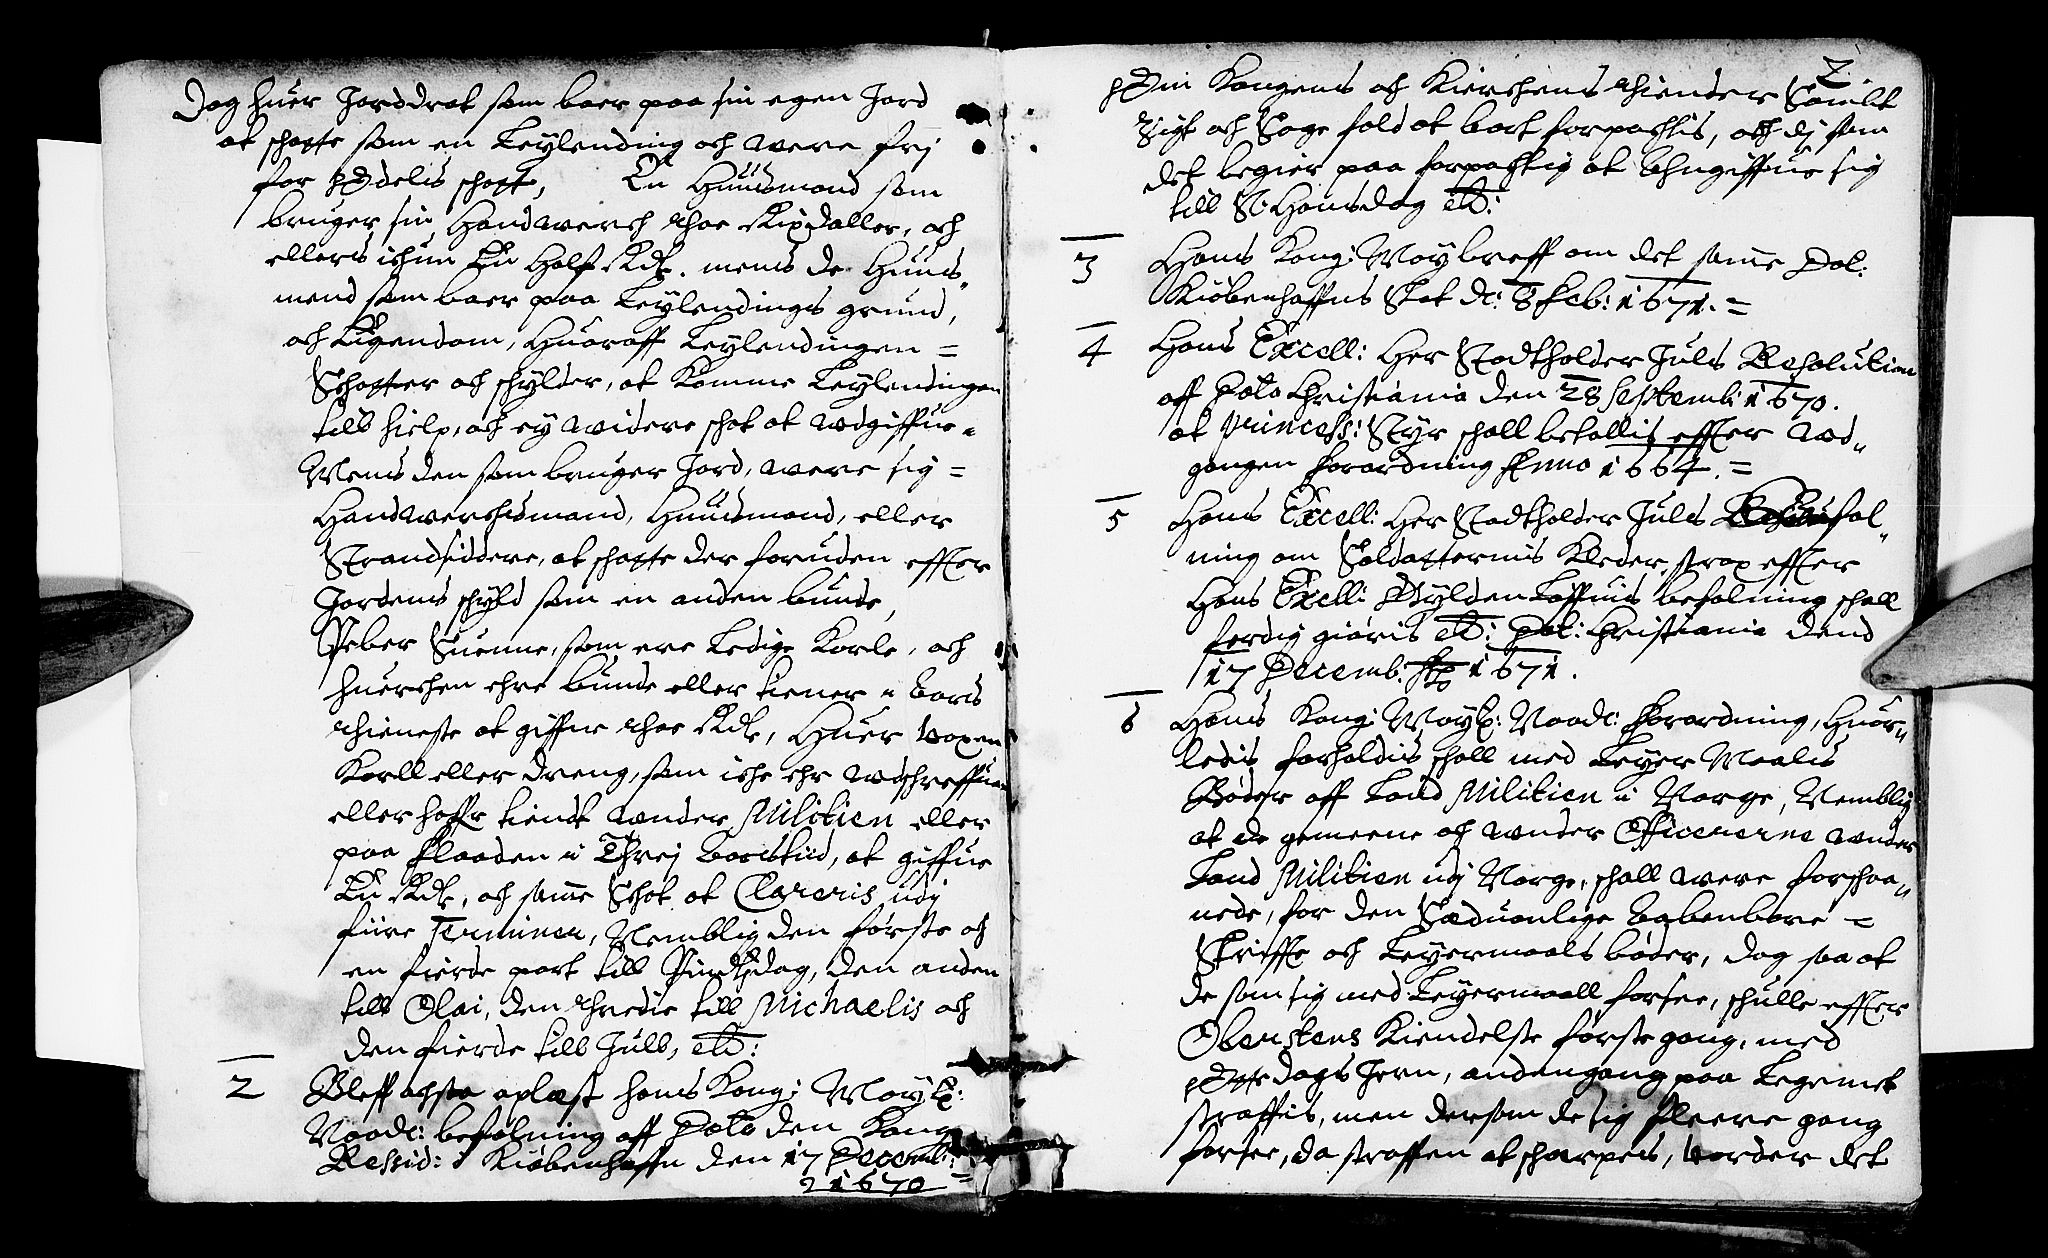 Dog huer Jorddrot som boer paa sin egen Jord
at schatte som en Leylending och were frj
for Ødelis schatt, En Huusmand som
bruger sin Handwerch thoe Rixdaller, och
ellers ichun En Half Rdr. mens de Huus„
mend som boer paa Leylendings grund,
och Eigendom, Huoraff Leylendingen =
Schatter och schylder, at komme Leylendingen
till hielp, och ey widere schat at wdgiffue =
Mens den som bruger Jord, were sig =
Handwerchsmand, Huusmand, eller
Strandsiddere, at schatte der foruden effter
Jordens schyld som en anden bunde,
Peber Suenne, som ere Ledige Karle, och
huerchen ehre bunde eller tiener i Aars
thieneste at giffue thoe Rdr, Huer voxen
Karll eller dreng, som iche ehr wdschreffuen
eller haffr tient under Militien eller
paa Flaaden i Threj Aars tiid, at giffue
En Rdr, och samme Schat at Clareris udj
fiire Terminer, Nemblig den første och
en fierde part till Pindtzdag, den anden
till Olai, den thredie till Michaelis och
den fierde till Jull, etc:
2 Bleff ochsaa oplæst hans Kong: Mayts:
Naads: befalning aff Dato den Kong
Ressid: i Kiøbenhaffn den 17 Decemb:
1670 =
2
Om Kongens och Kierchens thiender Sambt
Sigt och Sage fald at bort forpachtis, och dj som
det begier paa forpachtig at Angiffue sig
till St: Hansdag etc:
3 Hans Kong: Maybreff om det samme Dat:
Kiøbenhaffns Slot d: 8 Feb: 1671. =
4 Hans Excell: Her Stadtholder Juls Resolution
aff Dato Christiania den 28 Septemb: 1670.
at Princess: Styr schall betallis effter wd„
gangen forordning Anno 1664. =
5 Hans Excell: Her Stadtholder Juls befal„
ning om Soldatternis Kleder, strax effter
Hans Excell: Gyldenløffuis befalning schall
ferdig giøris etc: Dat: Christiania dend
17 Decemb: Ao 1671.
6 Hans Kong: Mayts: Naads: forordning, Huor„
ledis forholdis schall med Leyer Maals
Bøder aff Land Militien i Norge, Nemblig
at de gemeene och under Officererne under
Land Militien udj Norge, schall were forschaa„
nede, for den Sæduanlige Aabenbare =
Skriffte och Leyermaals bøder, dog saa at
de som sig med Leyermaall forsee, schulle effter
Oberstens Kiendelse første gang, med
Otte dags Jern, anden gang paa Legemet
straffis, men dersom de sig fleere gang
forsee, da straffen at scharpeis, vorder det